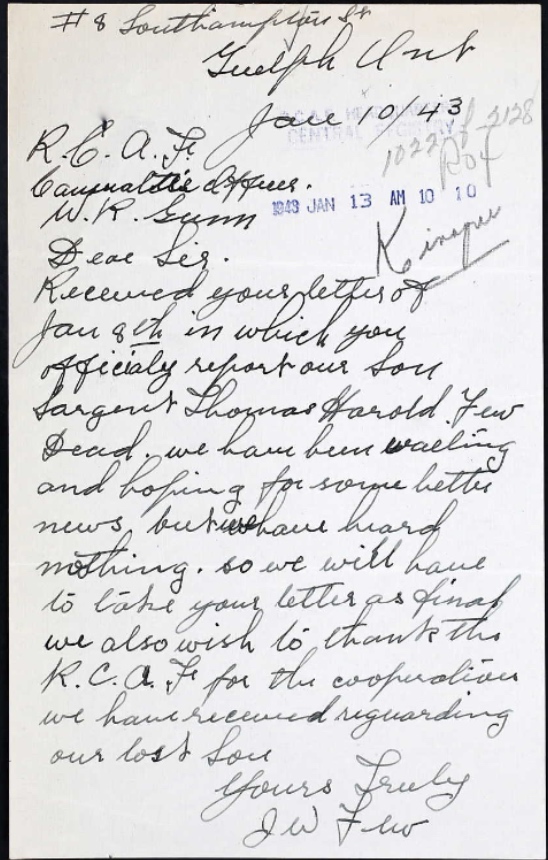 # 8 Southampton St
Guelph Ont
Jan 10/43
R.C.A.F. HEADQUARTERS
CENTRAL REGISTRY
R.C.A.F.
Casualties Officer.
W.R. Gunn
1943 JAN 13 AM 10 10
Dear Sir.
Received your letter of
Jan 8th in which you
officialy report our Son
Sargent Thomas Harold Few
Dead. we have been waeting
and hoping for some better
news, but we have heard
nothing. so we will have
to take your letter as final
we also wish to thank the
R.C.A.F for the cooperation
we have received reguarding
our lost Son
Yours Truly
J W Few